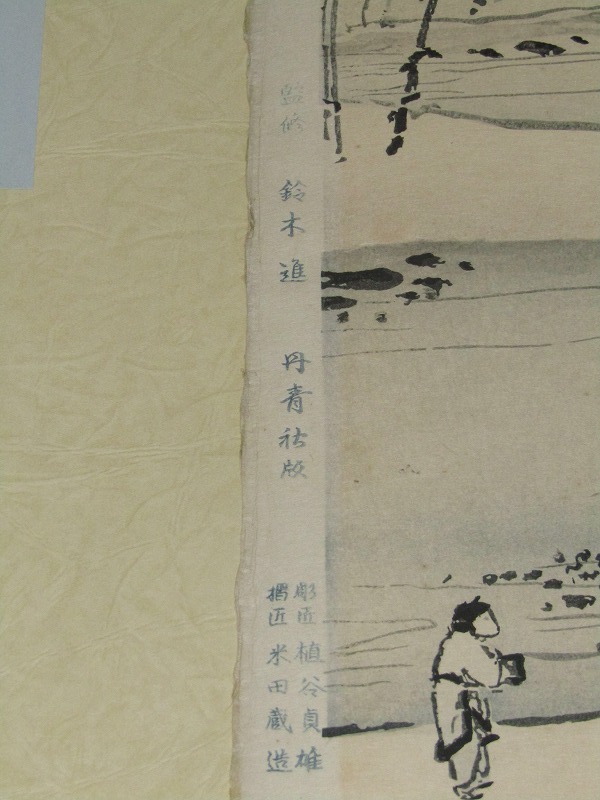 監修 鈴木進 丹青社版
彫匠 植谷貞雄
摺匠 米田蔵造